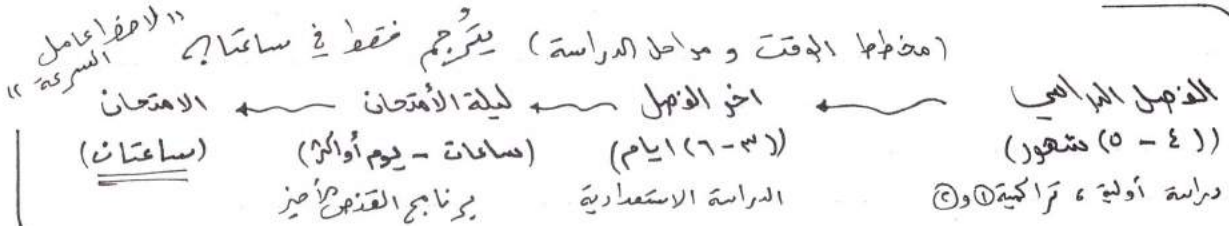 (مخطط الوقت و مراحل الدراسة) يُترجم فقط في ساعتان!! "لاحظ عامل السرعة"
الفصل الدراسي ← اخر الفصل ← ليلة الأمتحان ← الامتحان
((٤ - ٥) شهور) ((٣ - ٦) ايام) (ساعات - يوم أو اكثر) (ساعتان)
دراسة أولية ، تراكمية ① و ② الدراسة الاستعدادية برنامج القنص الأخير